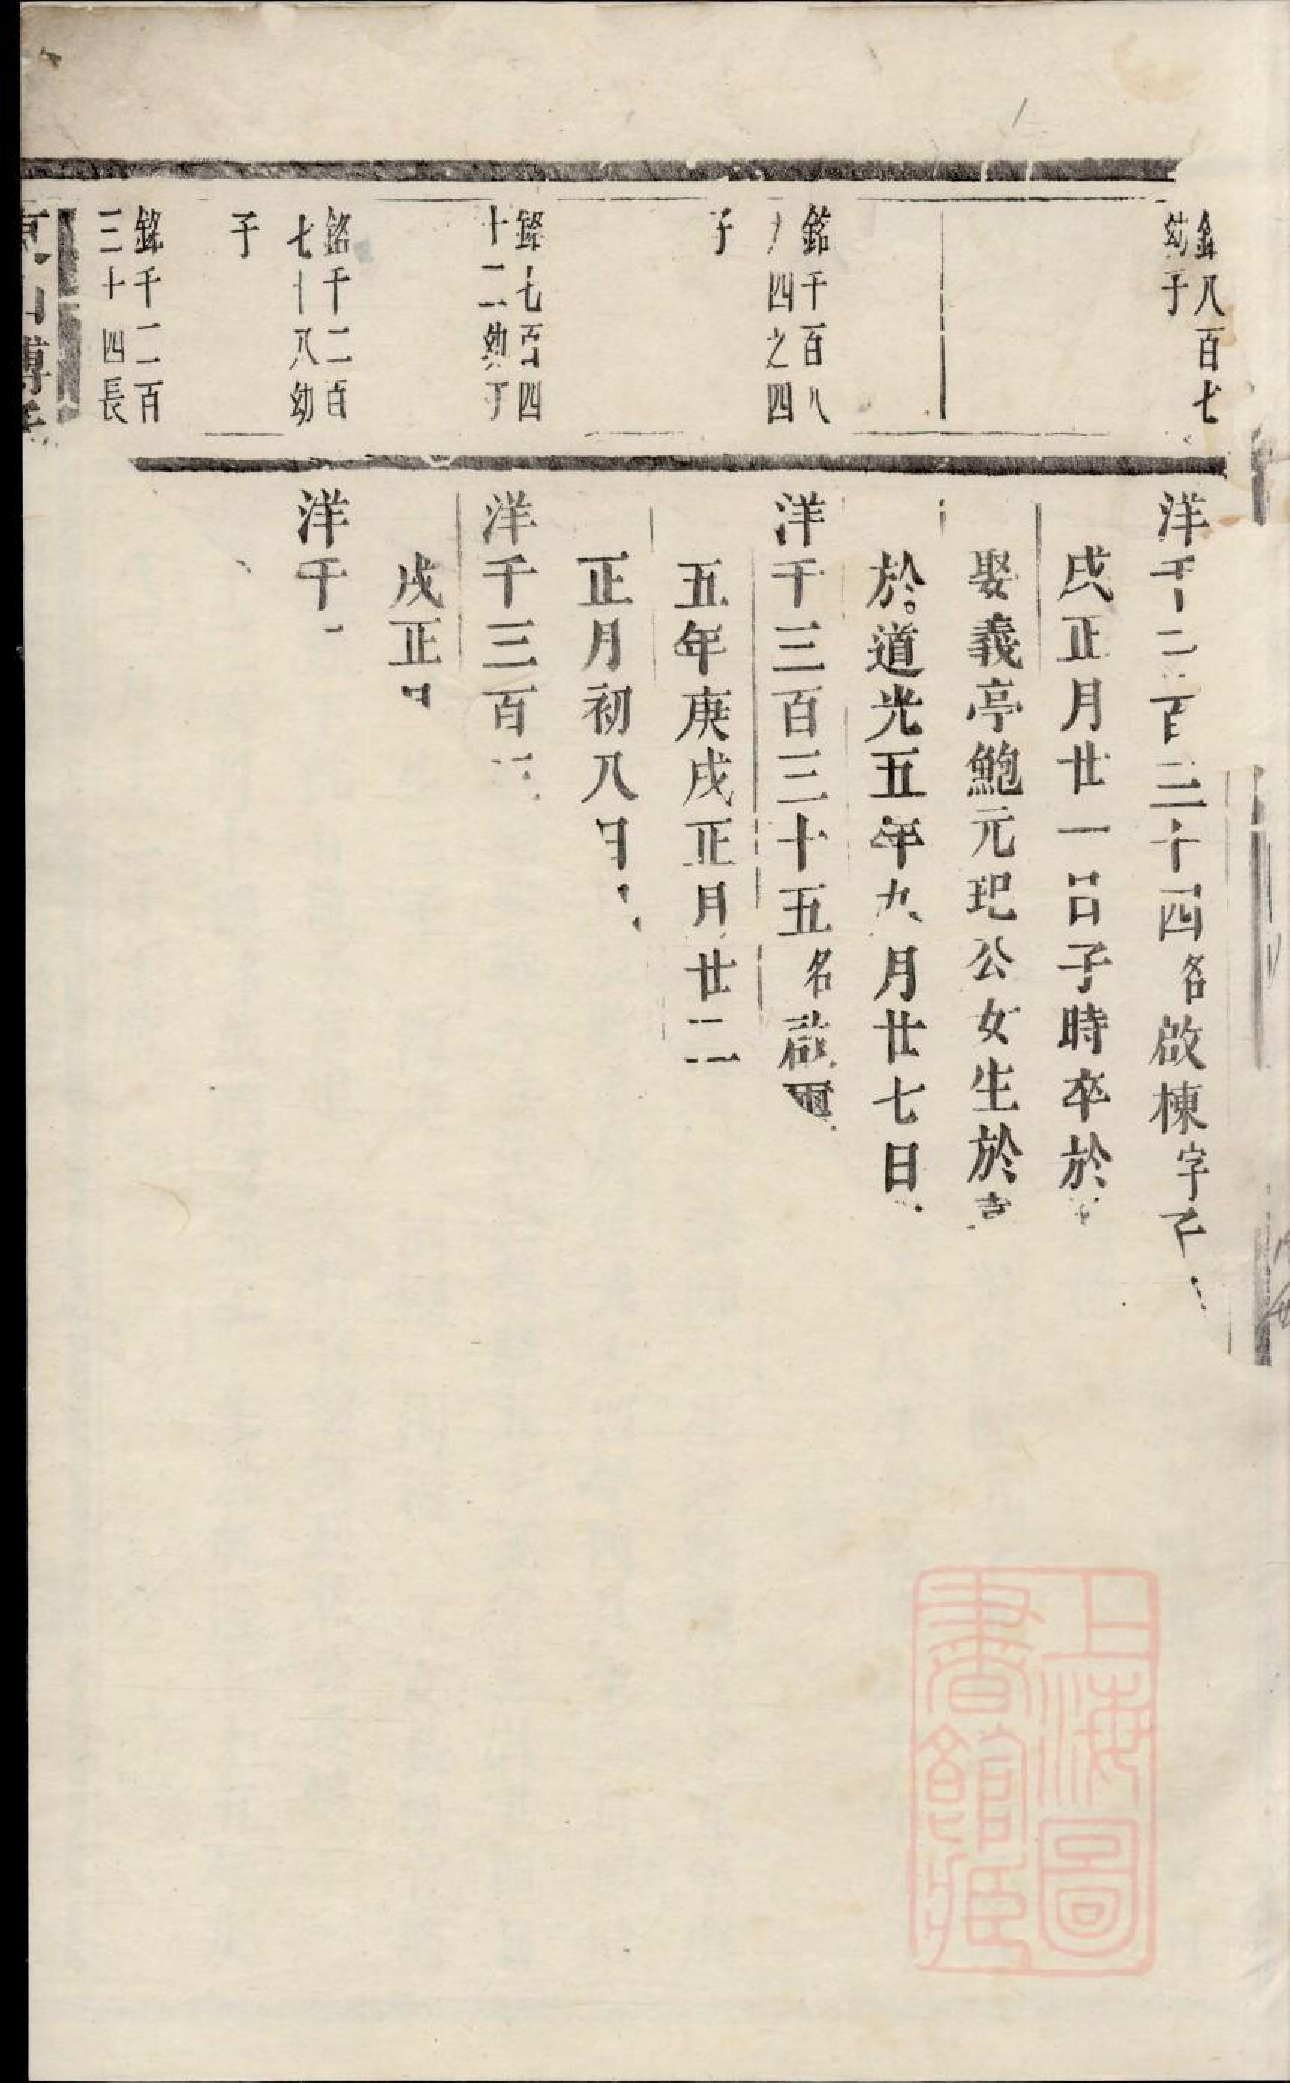 八百七
幼子
洋千三百三十四名啟棟字
戌正月廿一日子時卒於
娶義亭鮑元玘公女生於
於道光五年九月廿七日
銘千百八
四之四
子
洋千三百三十五名啟
五年庚戌正月廿二
正月初八日
七百四
十二幼子
洋千三百
戌正月
銘千二百
七十八幼
子
洋千
銘千二百
三十四長
上海圖
書館藏